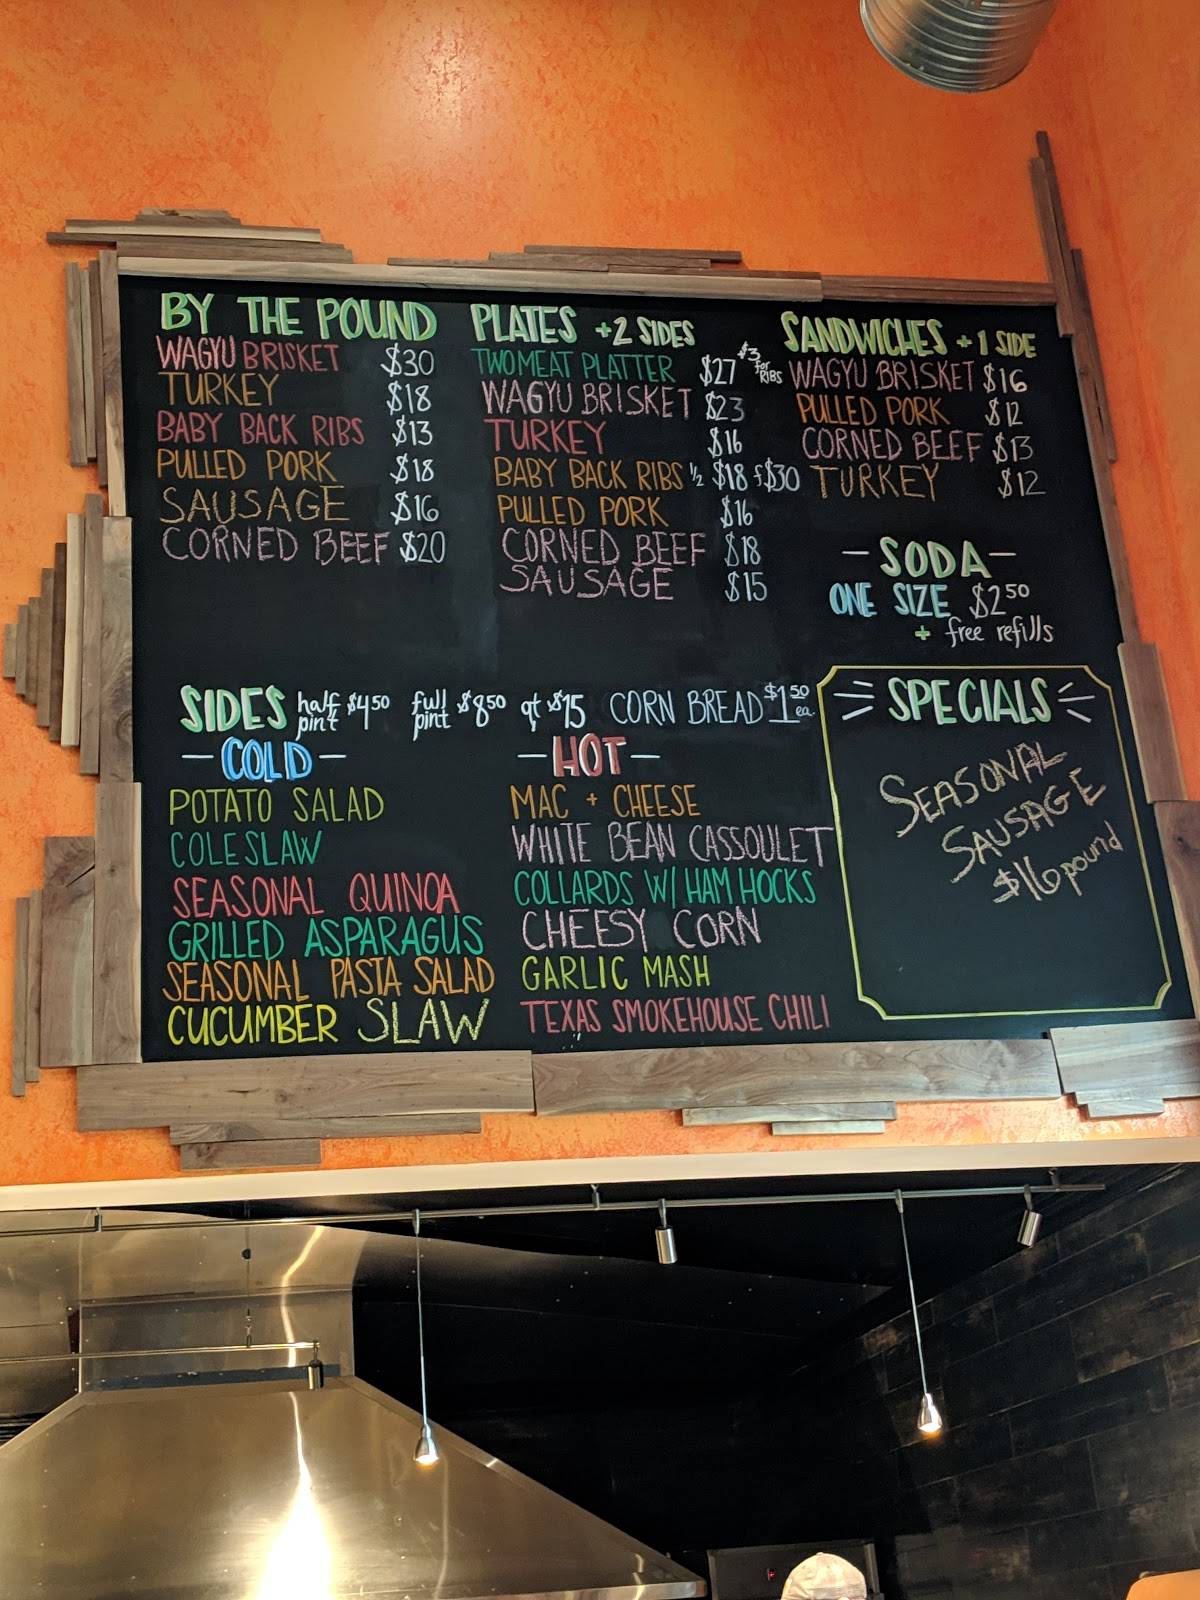 BY THE POUND
WAGYU BRISKET $30
TURKEY $18
BABY BACK RIBS $13
PULLED PORK $18
SAUSAGE $16
CORNED BEEF $20
PLATES +2 SIDES
TWO MEAT PLATTER $27 +$3 for RIBS
WAGYU BRISKET $23
TURKEY $16
BABY BACK RIBS ½ $18 f $30
PULLED PORK $16
CORNED BEEF $18
SAUSAGE $15
SANDWICHES +1 SIDE
WAGYU BRISKET $16
PULLED PORK $12
CORNED BEEF $13
TURKEY $12
- SODA -
ONE SIZE $2 50
+ free refills
SIDES half pint $4 50 full pint $8 50 qt $15 CORN BREAD $1 50 ea.
- COLD -
POTATO SALAD
COLESLAW
SEASONAL QUINOA
GRILLED ASPARAGUS
SEASONAL PASTA SALAD
CUCUMBER SLAW
- HOT -
MAC + CHEESE
WHITE BEAN CASSOULET
COLLARDS W/ HAM HOCKS
CHEESY CORN
GARLIC MASH
TEXAS SMOKEHOUSE CHILI
SPECIALS
SEASONAL
SAUSAGE
$16 pound